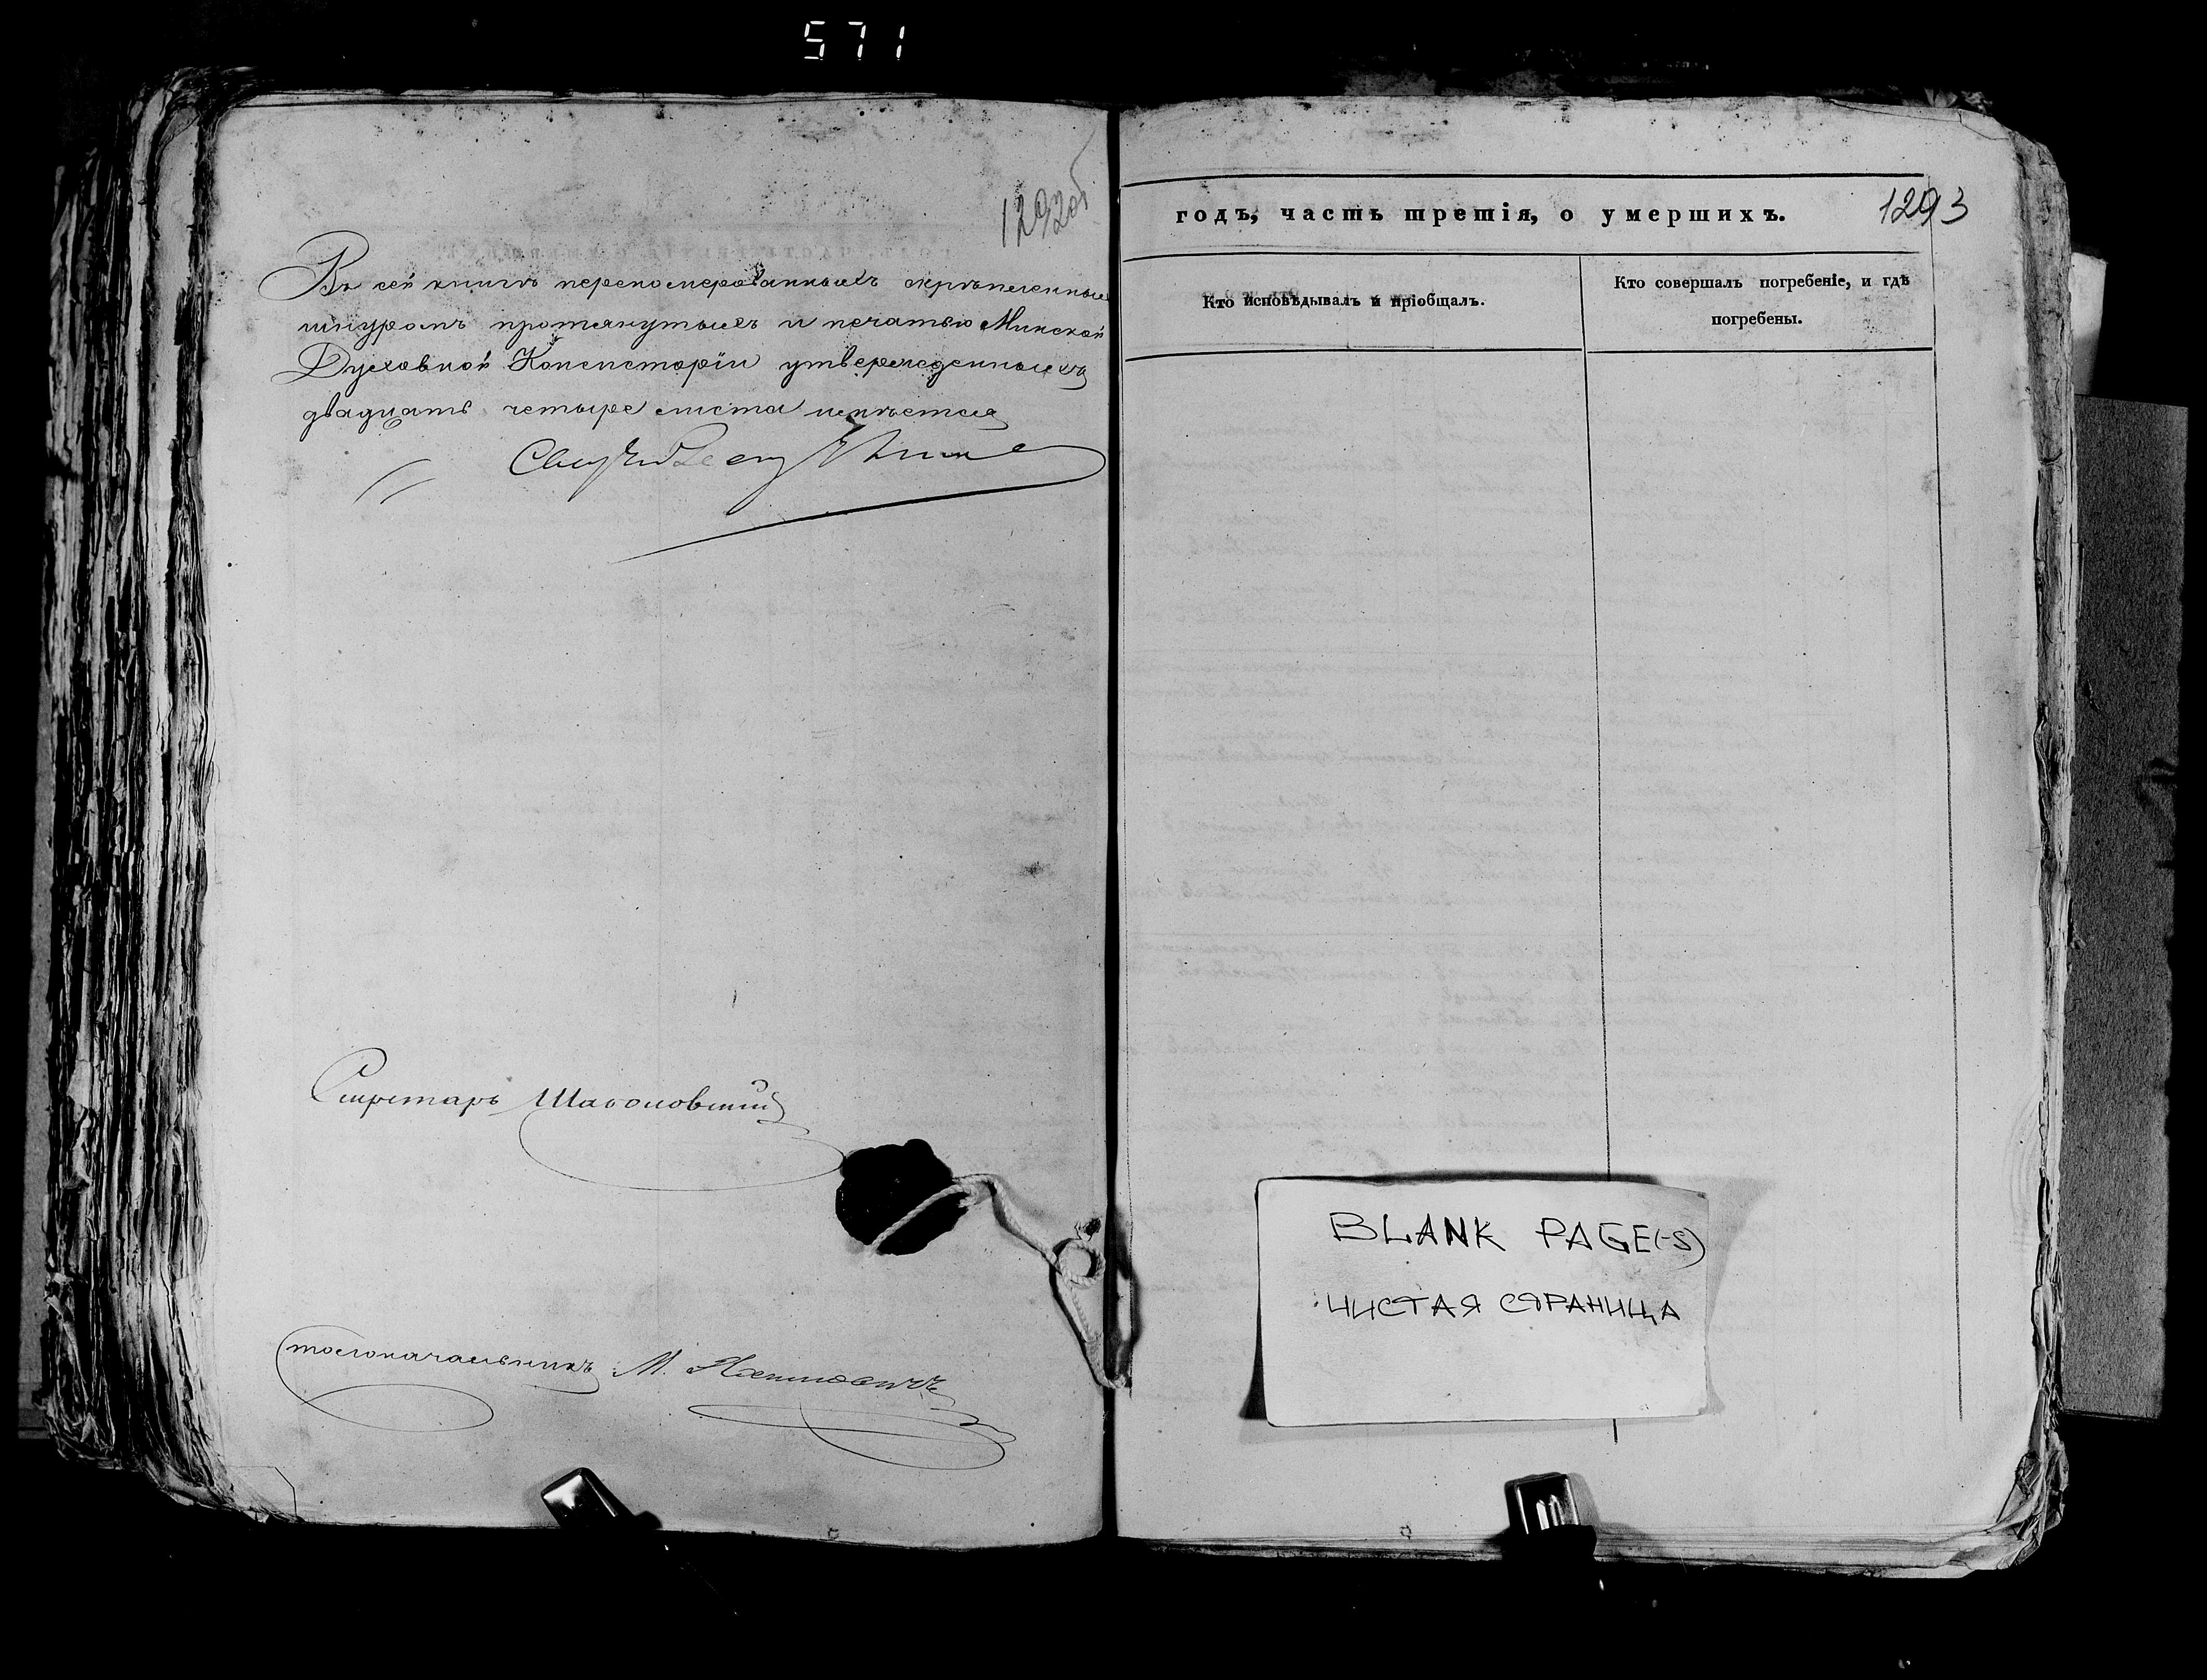 571
1292об
Въ сей книгѣ перепомерованныхъ скрѣпленныхъ
шнуромъ протянутыхъ и печатью Минской
Духовной Консисторіи утвержденныхъ
двадцать четыре листа имѣется
Секретарь
Столоначальникъ М.
годъ, часть третія, о умершихъ.
1293
Кто исповѣдывалъ и пріобщалъ.
Кто совершалъ погребеніе, и гдѣ
погребены.
BLANK PAGE(-S)
ЧИСТАЯ СТРАНИЦА